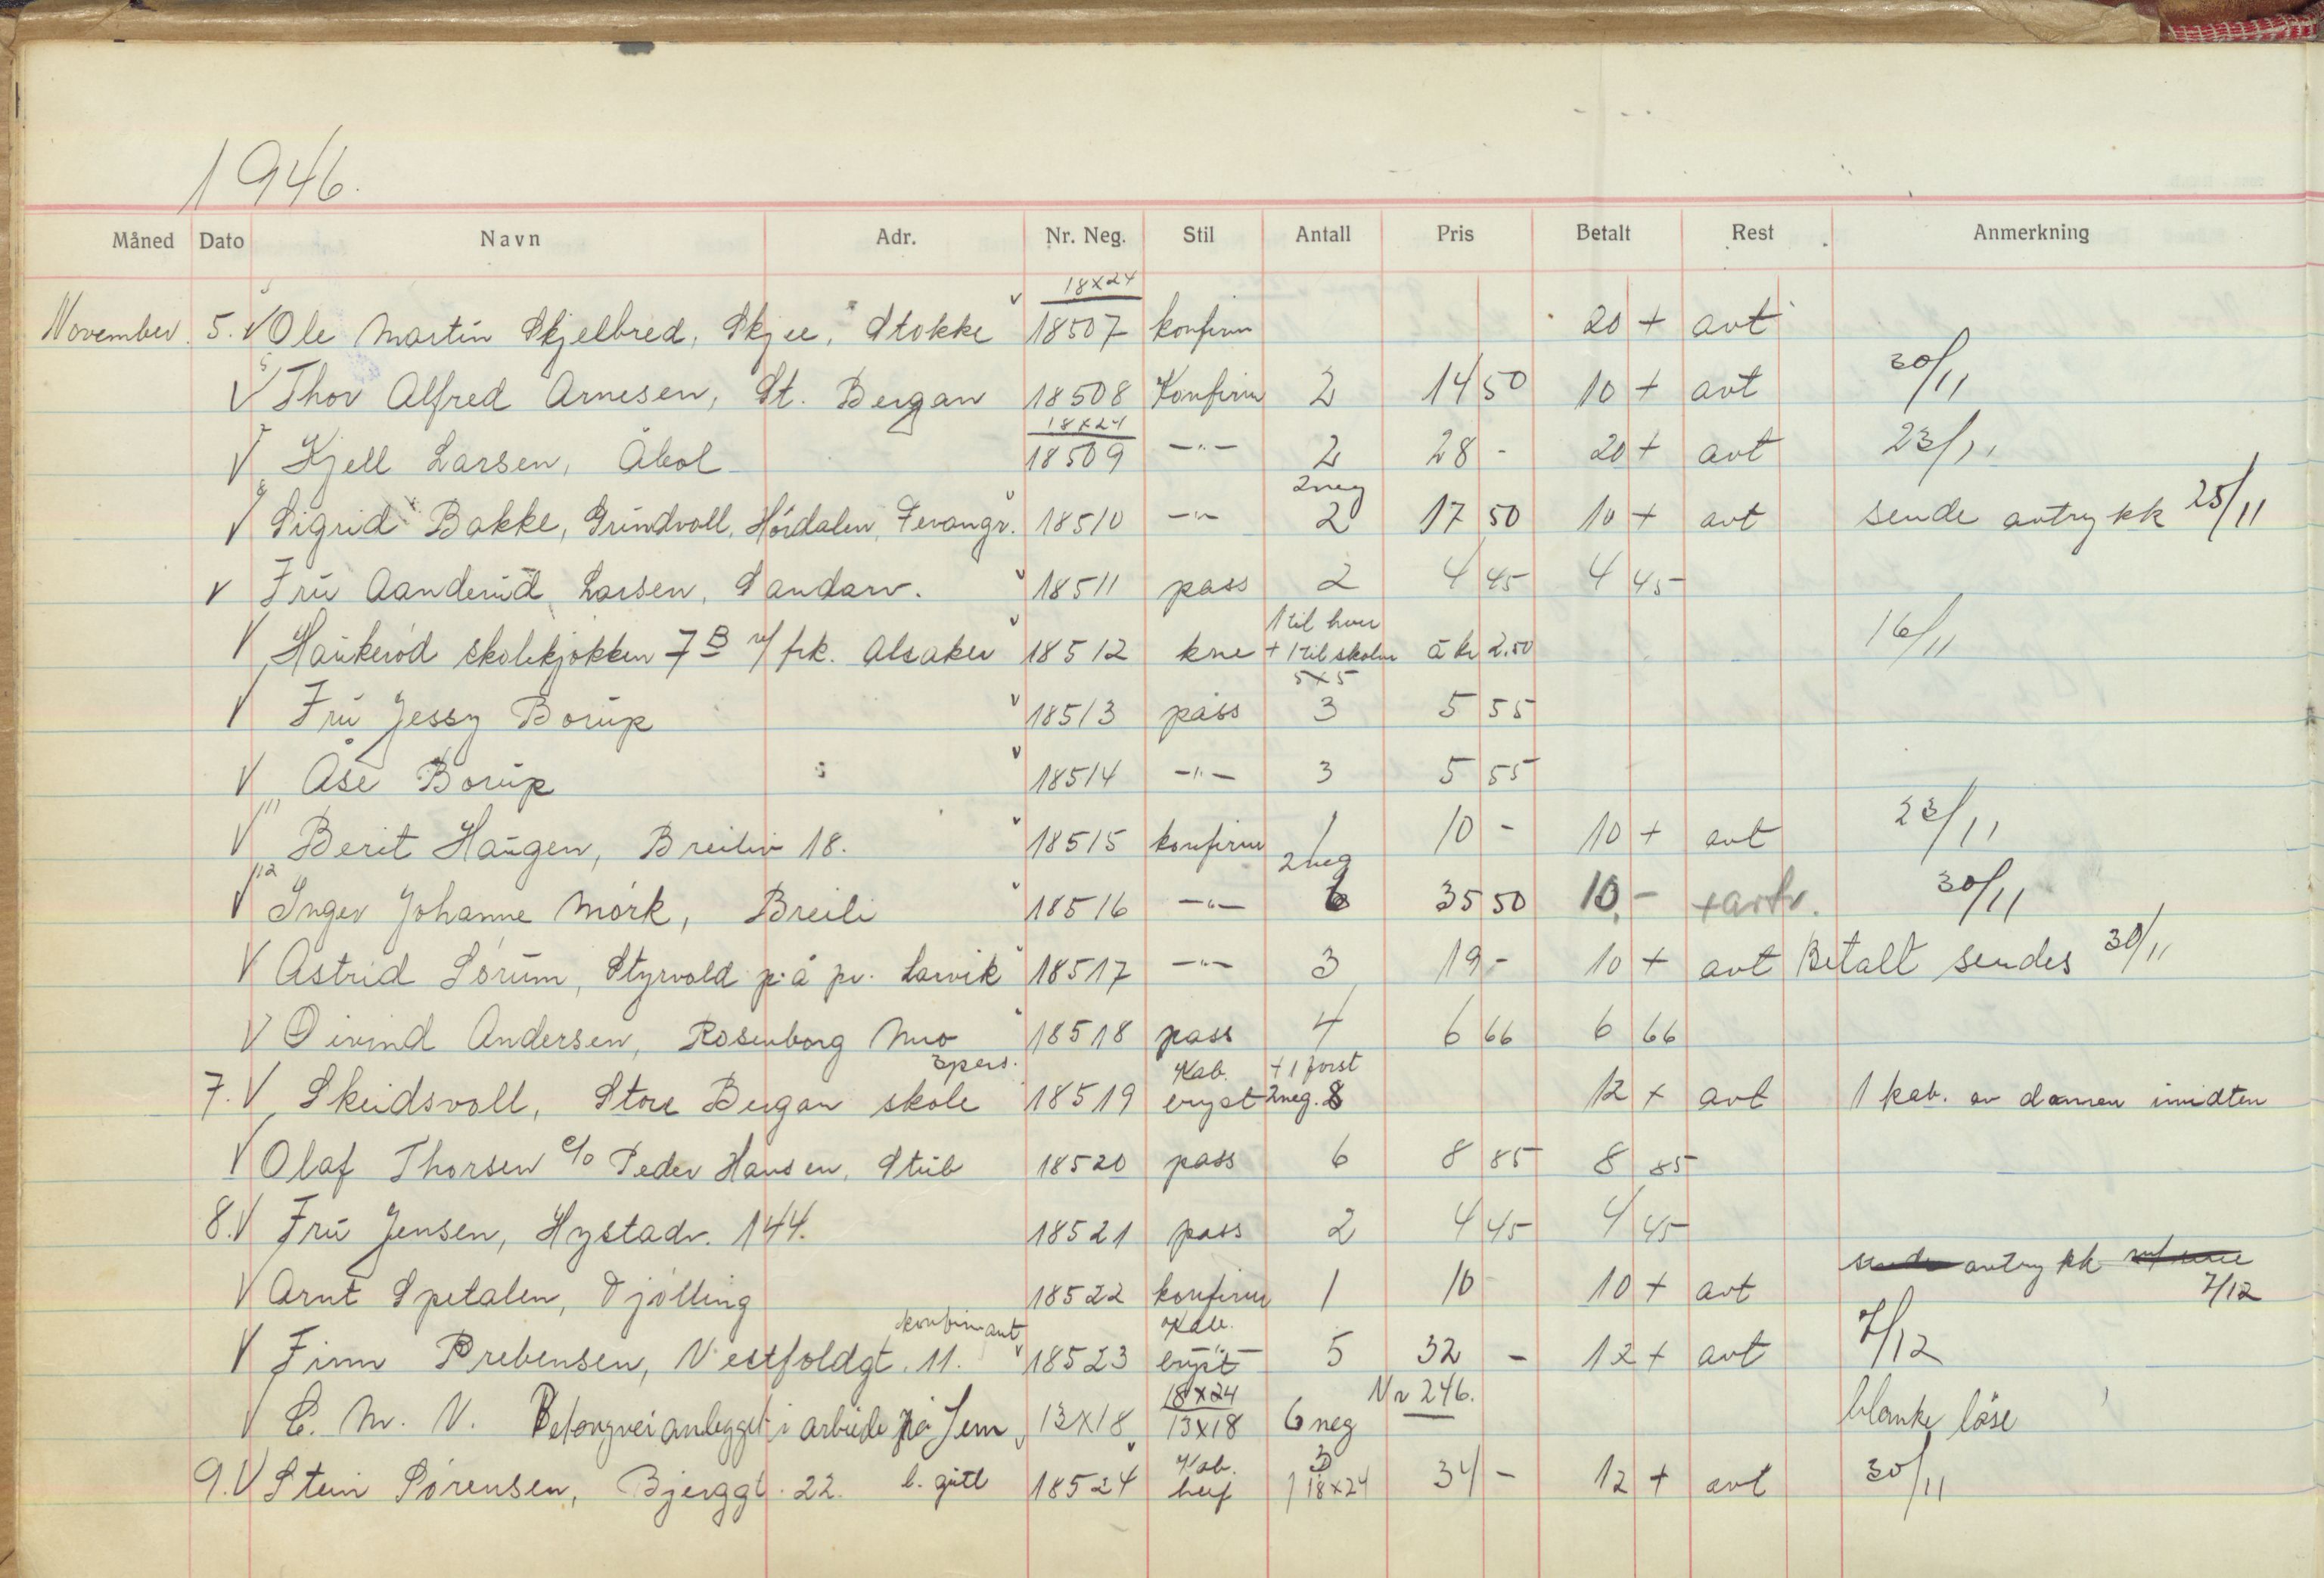 1946.
Måned Dato Navn Adr. Nr. Neg. Stil Antall Pris Betalt Rest Anmerkning
18x24
November. 5. V Ole Martin Skjelbred, Skjee, Stokke 18507 konfirm 20 + avt
V Thor Alfred Arnesen, St. Bergan 18508 Konfirm 2 14 50 10 + avt 30/11
18x24
V Kjell Larsen, Åbol 18509 -"- 2 28 - 20 + avt 23/11
2 neg
V Sigrid Bakke, Grindvoll, Hördalen, Tevangr. 18510 -"- 2 17 50 10 + avt sende avtrykk 25/11
V Frū Aanderud Larsen, Sandarv. 18511 pass 2 4 45 4 45
1 til hver
V Haukeröd skolekjökken 7B v/ frk. Alsaker 18512 kne + 1 til skolen à kr 2.50 16/11
5x5
V Frū Jessy Borūp 18513 pass 3 5 55
V Åse Borūp 18514 -"- 3 5 55
V Berit Haūgen, Breiliv 18. 18515 konfirm 1 10 - 10 + avt 23/11
2 neg
V Inger Johanne Mörk, Breili 18516 -"- 6 35 50 10.- + avtr. 30/11
V Astrid Sörūm, Styrvold p.å pr. Larvik 18517 -"- 3 19 - 10 + avt Betalt sendes 30/11
V Öivind Andersen, Rosenborg Mvo 18518 pass 4 6 66 6 66
3 pers. Kab. + 1 forst
7. V Skeidsvoll, Store Bergan skole 18519 bryst 2 neg. 8 12 + avt 1 kab. av damen imidten
V Olaf Thorsen c/o Peder Hansen, Stūb 18520 pass 6 8 85 8 85
8. V Frū Jensen, Hystadv. 144. 18521 pass 2 4 45 4 45
sende avtrykk
V Arnt Spetalen, Tjölling 18522 konfirm 1 10 10 + avt 7/12
konfirmant Kab.
V Finn Prebensen, Vestfoldgt. 11. 18523 bryst 5 32 - 12 + avt 7/12
18x24 Nr 246.
V E. M. V. Betongveianlegget i arbeide på Jem 13x18 13x18 6 neg blanke löse
Kab. 3
9. V Stein Sörensen, Bjerggt. 22. l. gutt 18524 hel 1 18x24 34 - 12 + avt 30/11